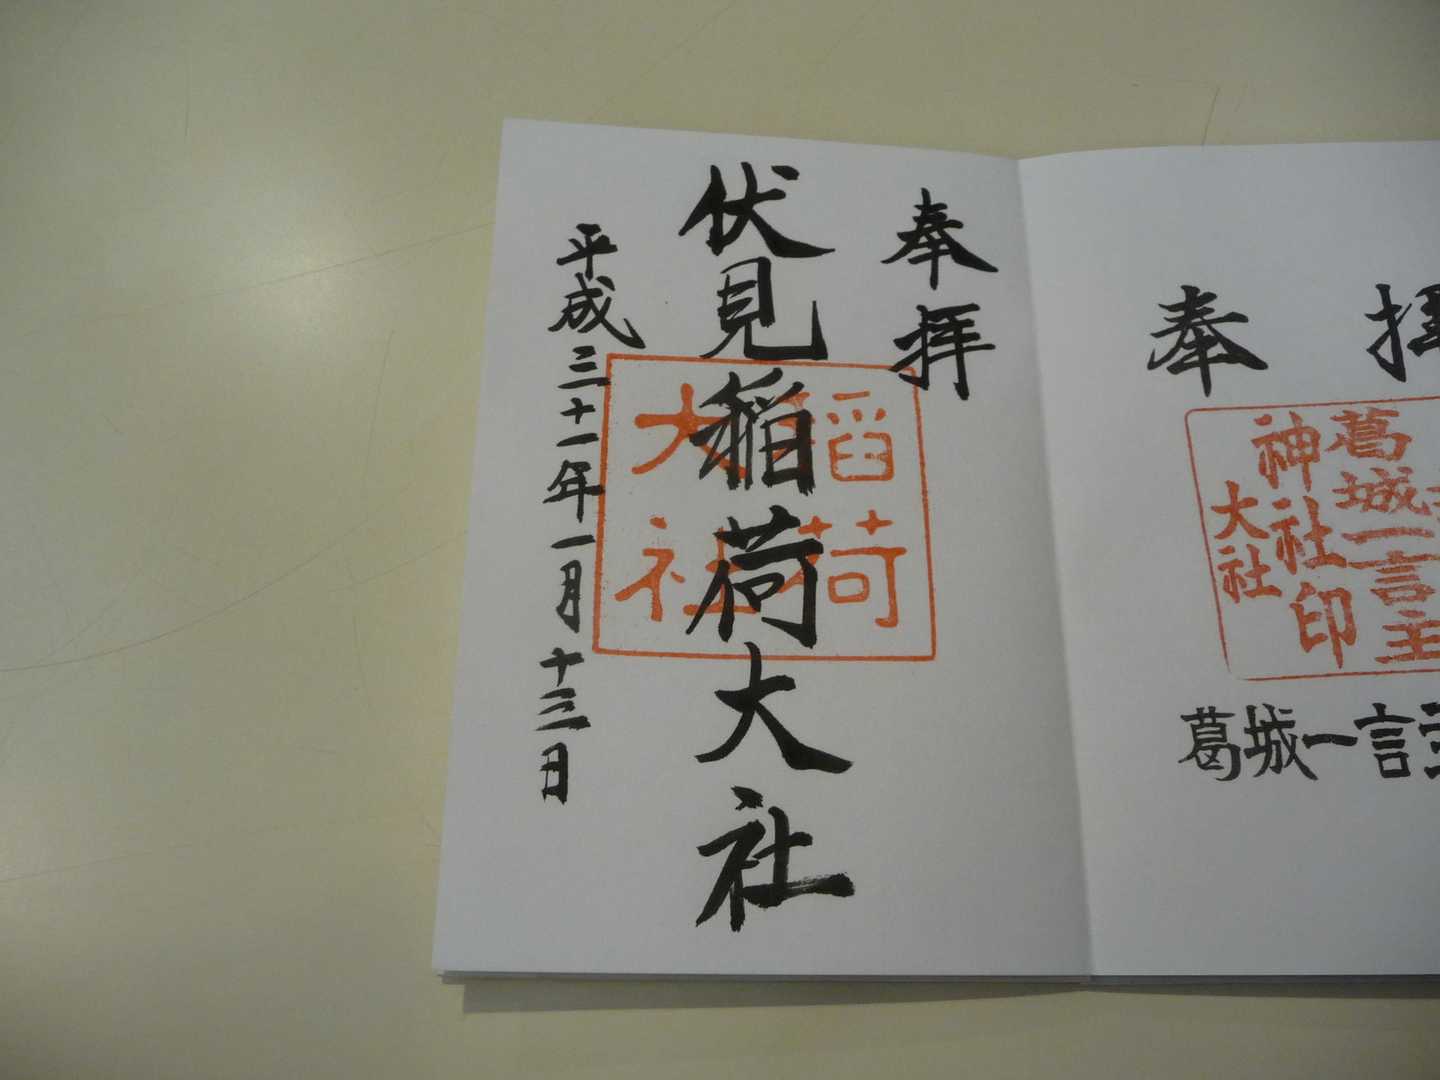 奉拝
伏見稲荷大社
稲荷
大社
平成三十一年一月十三日
奉拝
葛城一言主
神社印
大社
葛城一言主